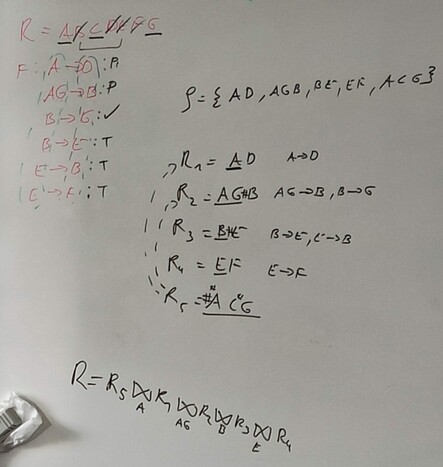 R = A B C D E F G
F: A → D : P
AG → B : P
B → G : ✓
B → E : T
E → B : T
E → F : T
ρ = { AD, AGB, BE, EF, ACG }
R₁ = AD A→D
R₂ = AGB AG→B, B→G
R₃ = BE B→E, E→B
R₄ = EF E→F
R₅ = ACG
R = R₅ ⋈ R₁ ⋈ R₂ ⋈ R₃ ⋈ R₄
A AG B E